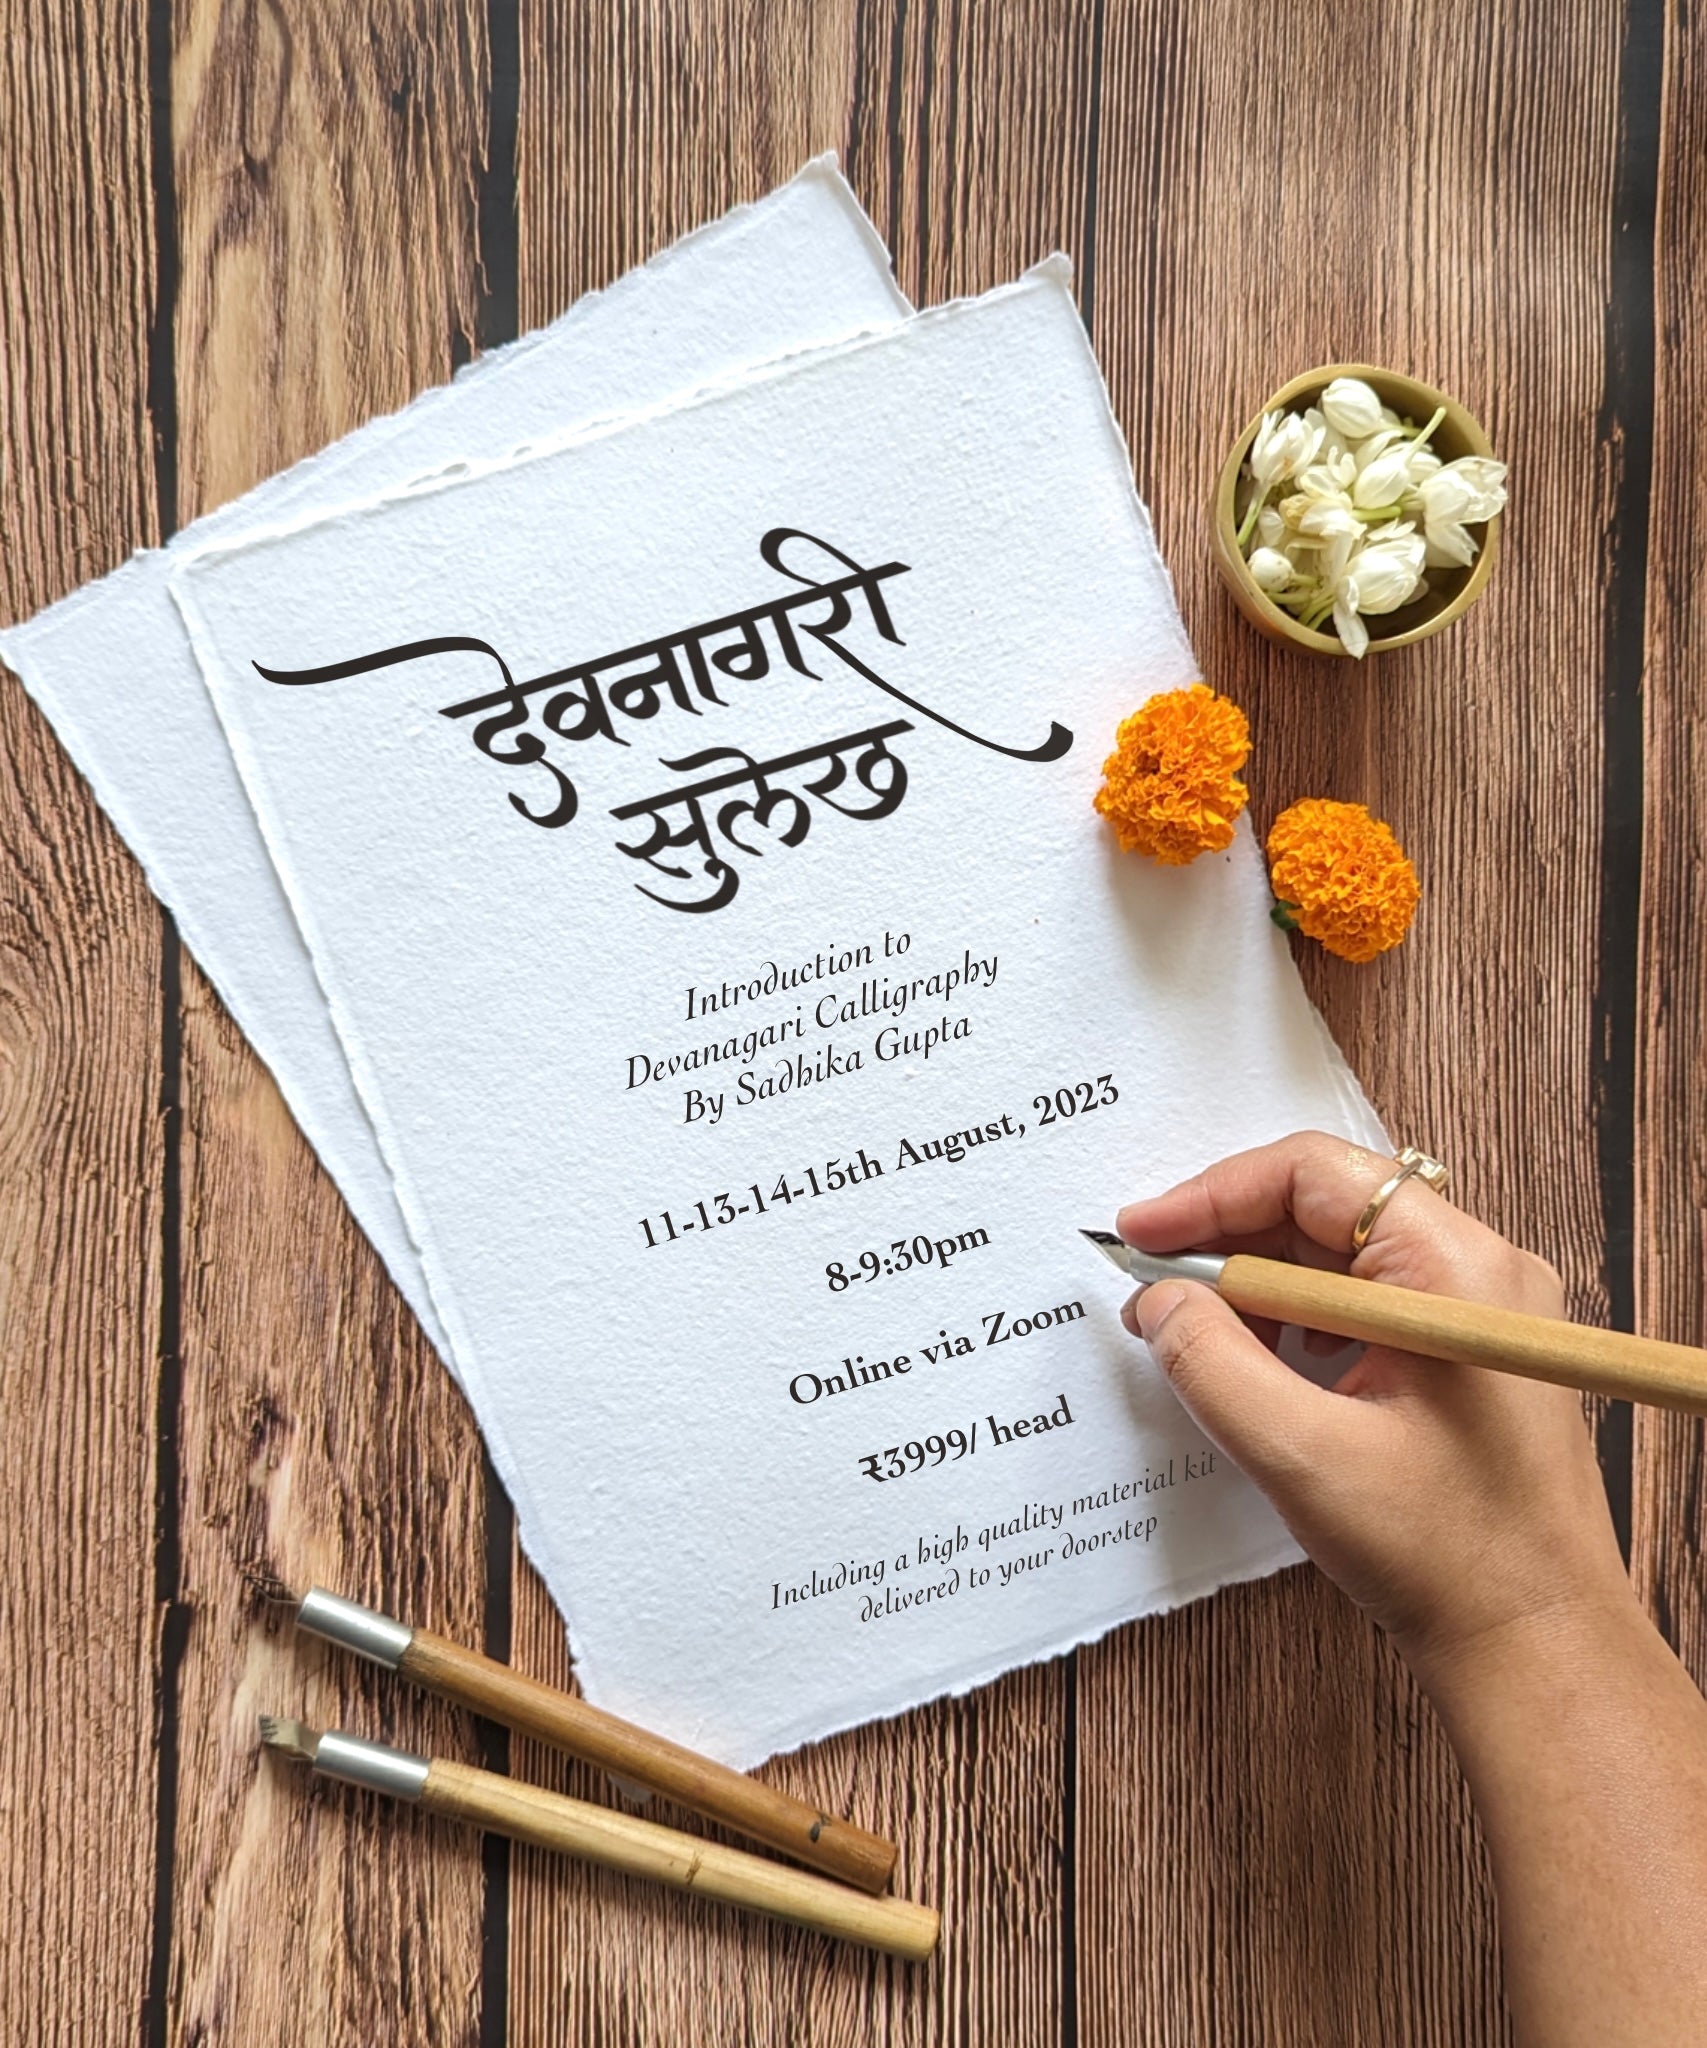 देवनागरी
सुलेख
Introduction to
Devanagari Calligraphy
By Sadhika Gupta
11-13-14-15th August, 2023
8-9:30pm
Online via Zoom
₹3999/ head
Including a high quality material kit
delivered to your doorstep